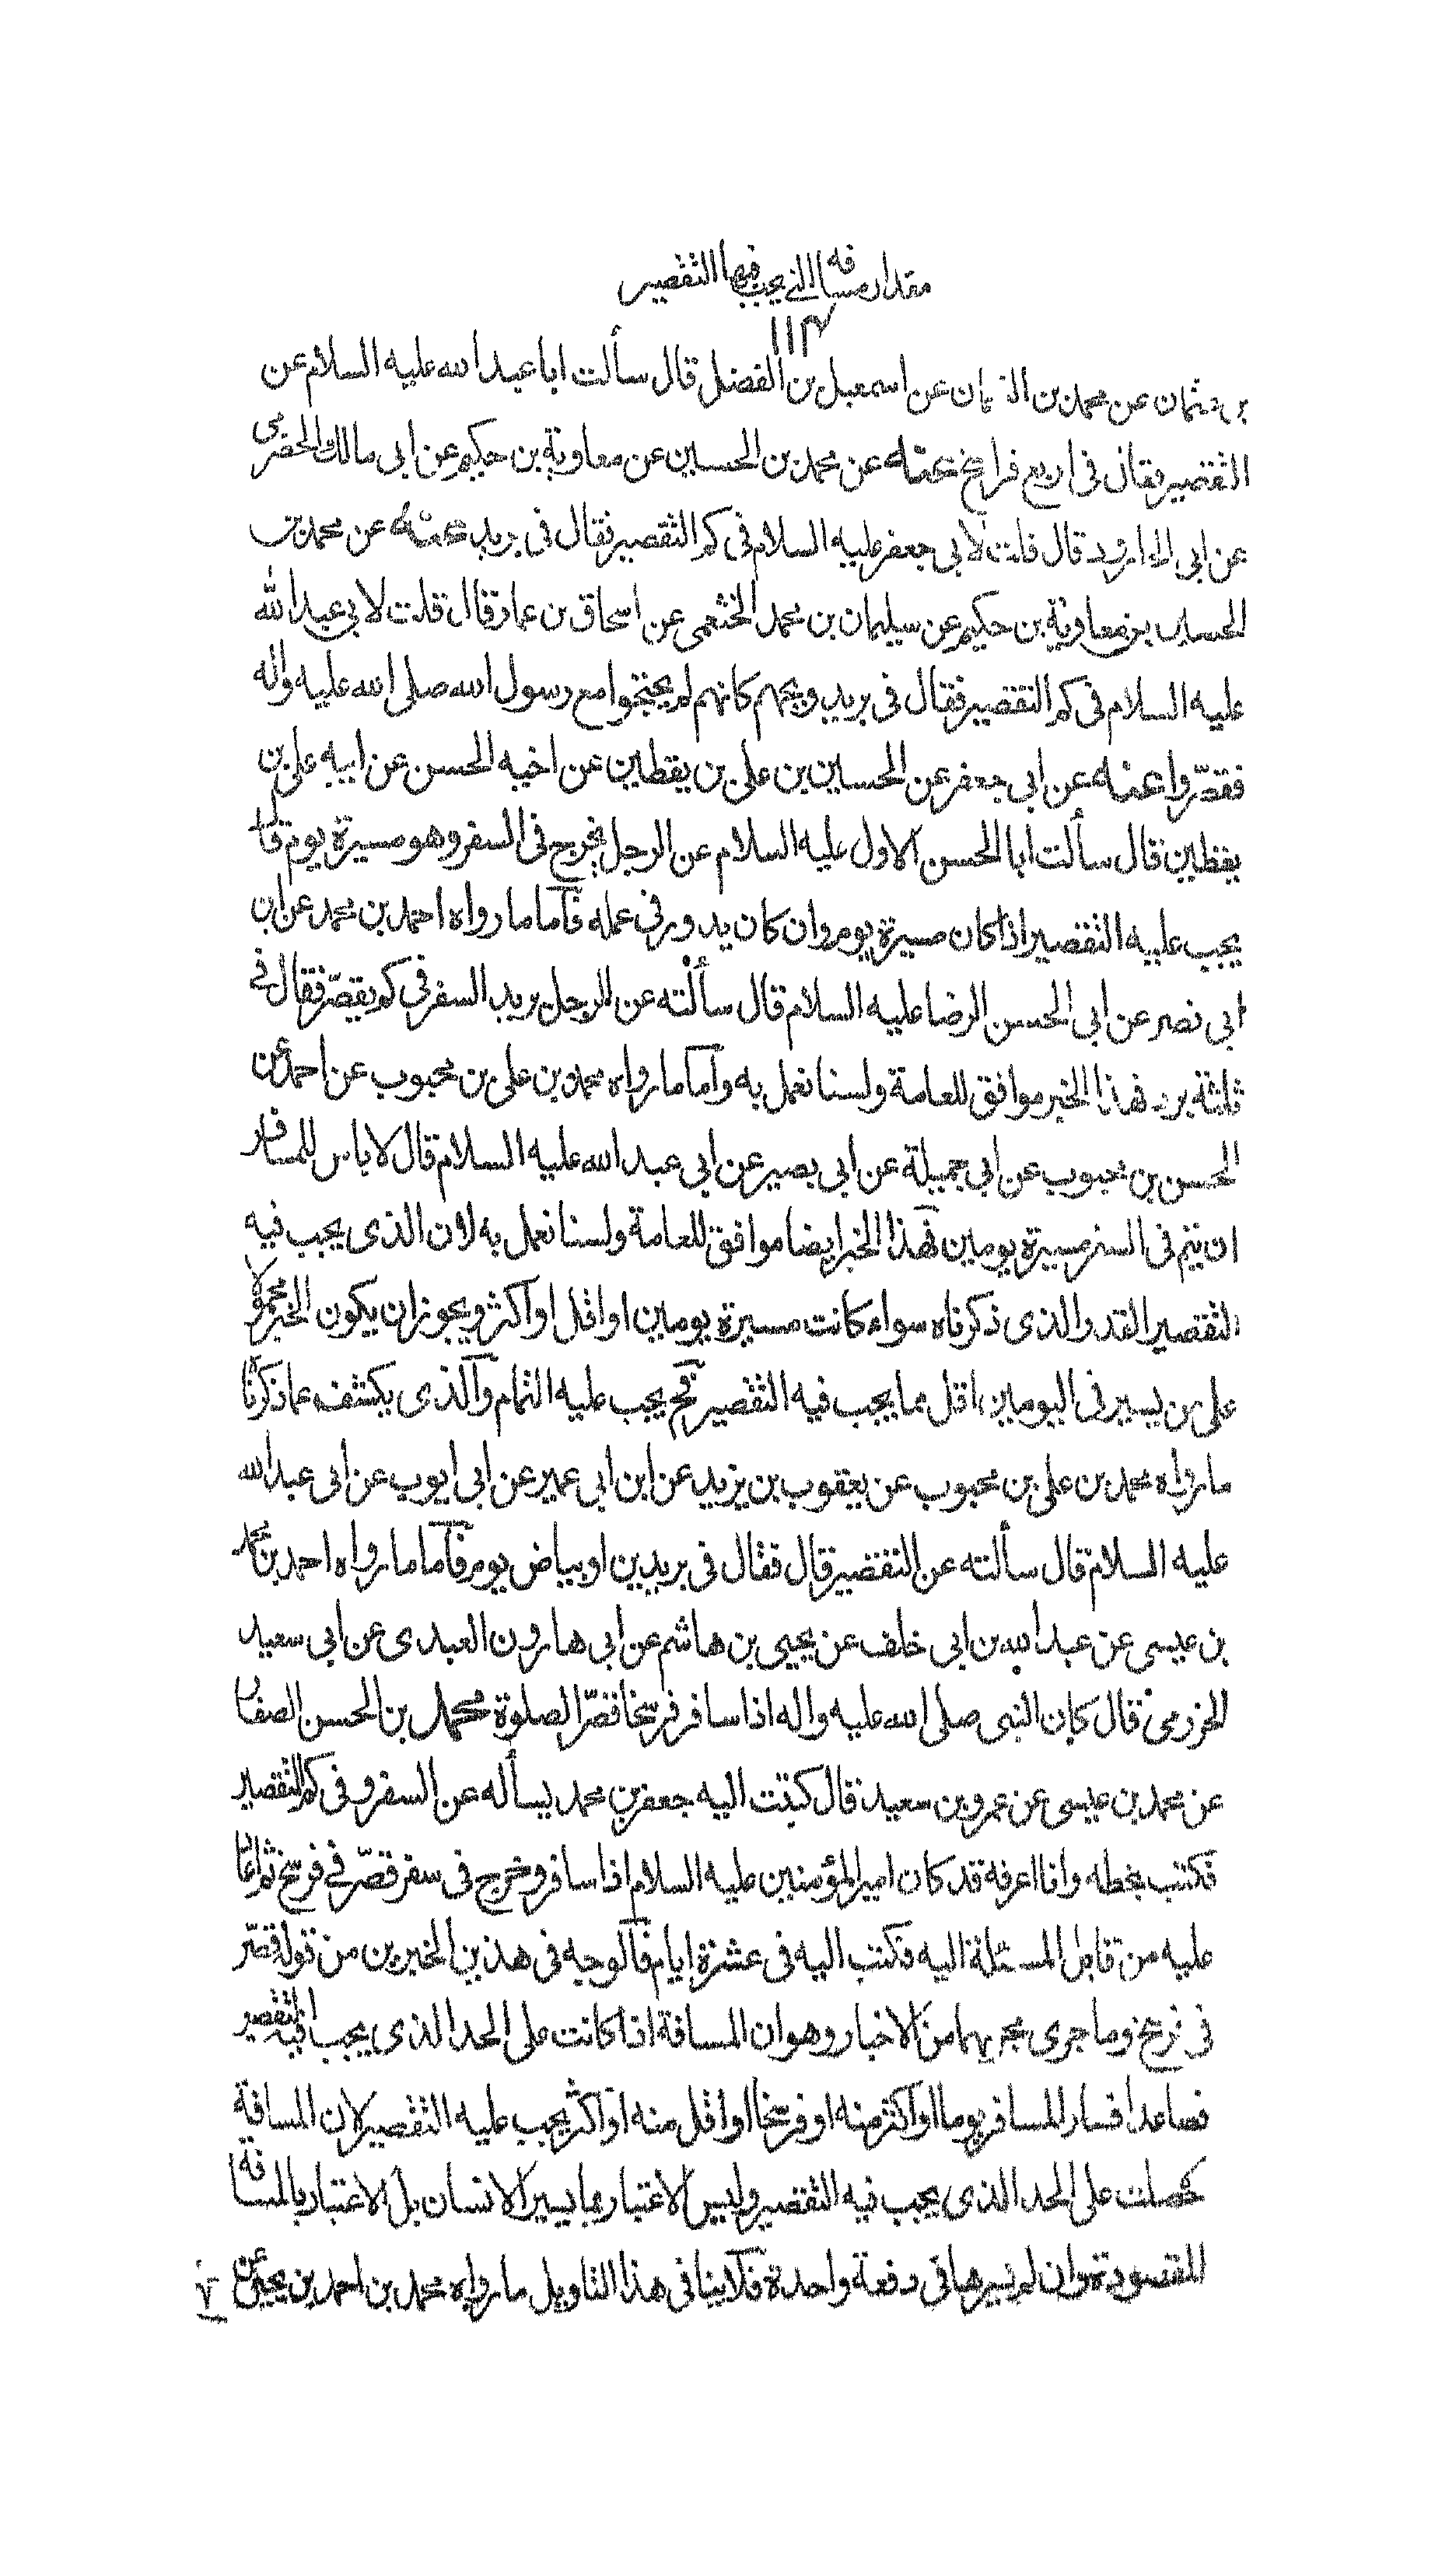 مقدار مسافه التي يجب فيها التقصير
١١٣
عن محمد بن النعمان عن اسمعيل بن الفضل قال سألت ابا عبد الله عليه السلام عن
التقصير فقال فى اربع فراسخ عنه عن محمد بن الحسين عن معاوية بن حكيم عن ابى مالك الحضرمى
عن ابى الجارود قال قلت لابى جعفر عليه السلام فى كم التقصير فقال فى بريد عنه عن محمد بن
الحسين عن معاوية بن حكيم عن سليمان بن محمد الخثعمى عن اسحاق بن عمار قال قلت لابى عبد الله
عليه السلام فى كم التقصير فقال فى بريد ويحهم كانهم لم يحجوا مع رسول الله صلى الله عليه واله
فقصّروا عنه عن ابى جعفر عن الحسين بن على بن يقطين عن اخيه الحسن عن ابيه على بن
يقطين قال سألت ابا الحسن الاول عليه السلام عن الرجل يخرج فى السفر وهو مسيرة يوم قال
يجب عليه التقصير اذا كان مسيرة يوم وان كان يدور فى عمله فاما ما رواه احمد بن محمد عن ابن
ابى نصر عن ابى الحسن الرضا عليه السلام قال سألته عن الرجل يريد السفر فى كم يقصّر فقال فى
ثلثة برد فهذا الخبر موافق للعامة ولسنا نعمل به واما ما رواه محمد بن على بن محبوب عن احمد عن
الحسن بن محبوب عن ابى جميلة عن ابى بصير عن ابى عبد الله عليه السلام قال لا باس للمسافر
ان يتم فى السفر مسيرة يومين فهذا الخبر ايضا موافق للعامة ولسنا نعمل به لان الذى يجب فيه
التقصير القدر الذى ذكرناه سواء كانت مسيرة يومين او اقل او اكثر ويجوز ان يكون الخبر محمولا
على من يسير فى اليومين اقل مما يجب فيه التقصير فح يجب عليه التمام والذى يكشف عما ذكرناه
ما رواه محمد بن على بن محبوب عن يعقوب بن يزيد عن ابن ابى عمير عن ابى ايوب عن ابى عبد الله
عليه السلام قال سألته عن التقصير قال فقال فى بريدين او بياض يوم فاما ما رواه احمد بن محمد
بن عيسى عن عبد الله بن ابى خلف عن يحيى بن هاشم عن ابى هارون العبدى عن ابى سعيد
الخدرى قال كان النبى صلى الله عليه واله اذا سافر فرسخا قصّر الصلوة محمد بن الحسن الصفار
عن محمد بن عيسى عن عمرو بن سعيد قال كتبت اليه جعفر بن محمد يسأله عن السفر وفى كم التقصير
فكتب بخطه وانا اعرفه قد كان امير المؤمنين عليه السلام اذا سافر وخرج فى سفر قصّر فى فرسخ ثم اعاد
عليه من قابل المسئلة اليه فكتب اليه فى عشرة ايام فالوجه فى هذين الخبرين من قوله قصّر
فى فرسخ وما جرى مجريهما من الاخبار وهو ان المسافة اذا كانت على الحد الذى يجب فيه التقصير
فصاعدا فسار المسافر يوما او اكثر منه او فرسخا او اقل منه او اكثر يجب عليه التقصير لان المسافة
حصلت على الحد الذى يجب فيه التقصير وليس الاعتبار بما يسير الانسان بل الاعتبار بالمسافه
المقصودة وان لم يسرها فى دفعة واحدة فلا ينافى هذا التاويل ما رواه محمد بن احمد بن يحيى عن
٧